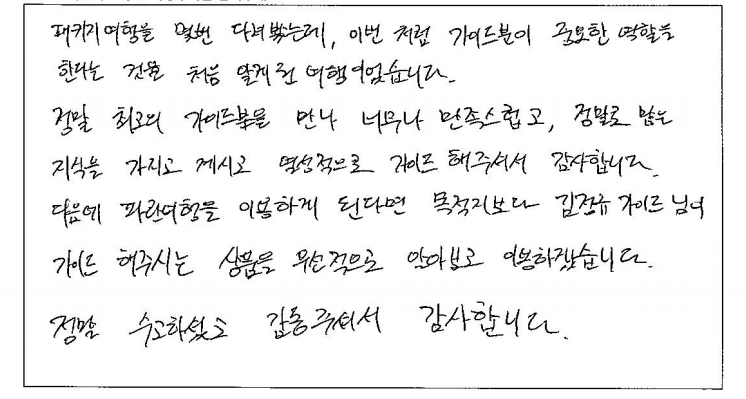 패키지여행을 몇번 다녀봤는데, 이번 처럼 가이드분이 중요한 역할을
한다는 것을 처음 알게 된 여행이었습니다.
정말 최고의 가이드분을 만나 너무나 만족스럽고, 정말로 많은
지식을 가지고 계시고 열성적으로 가이드 해주셔서 감사합니다.
다음에 파란여행을 이용하게 된다면 목적지보다 김정규 가이드 님이
가이드 해주시는 상품을 우선적으로 알아보고 이용하겠습니다.
정말 수고하셨고 감동주셔서 감사합니다.